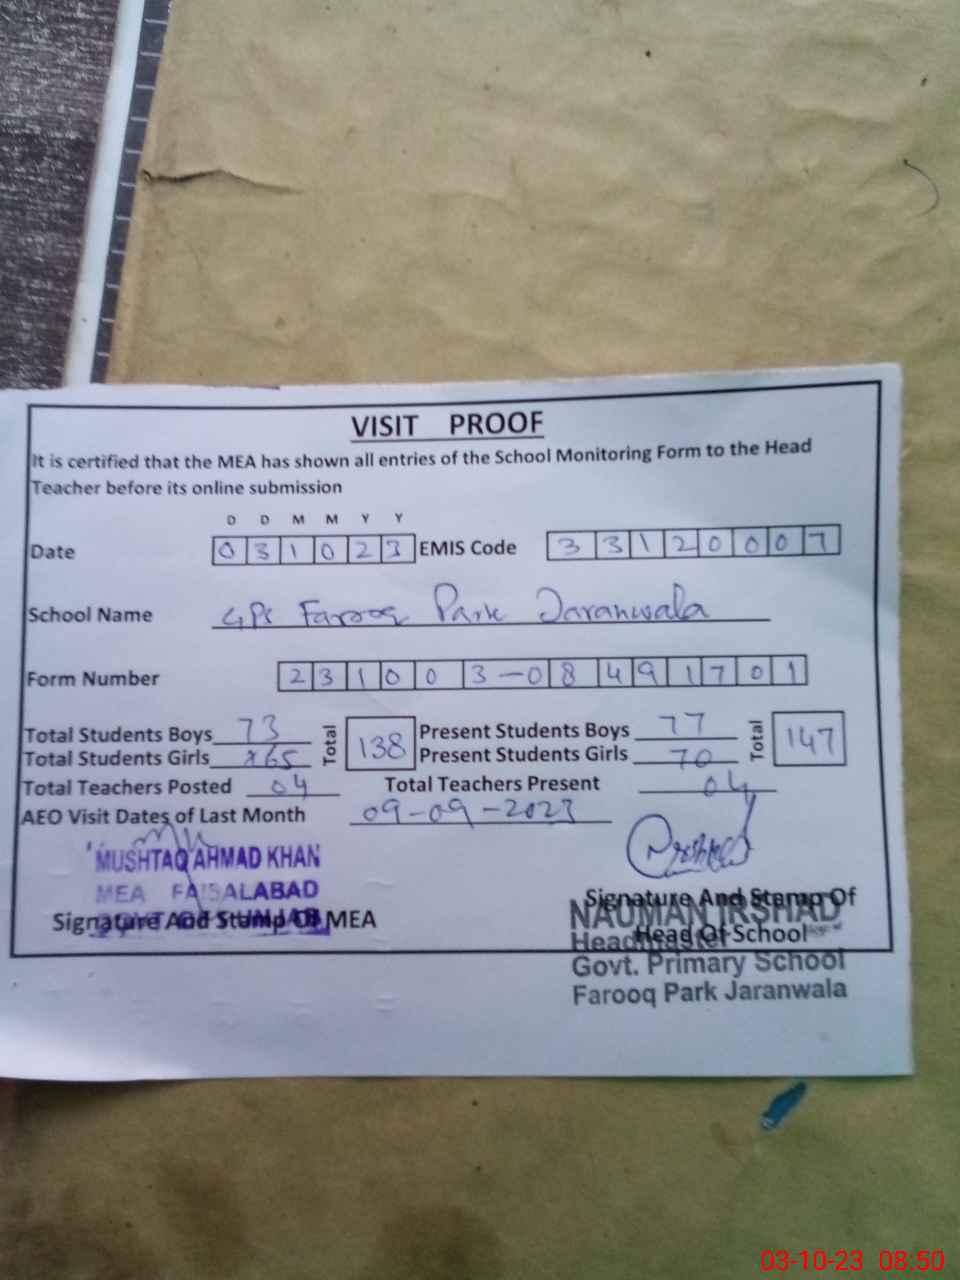 VISIT PROOF
It is certified that the MEA has shown all entries of the School Monitoring Form to the Head
Teacher before its online submission
D D M M Y Y
Date 0 3 1 0 2 3 EMIS Code 3 3 1 2 0 0 0 7
School Name GPS Farooq Park Jaranwala
Form Number 2 3 1 0 0 3 - 0 8 4 9 1 7 0 1
Total Students Boys 73 Total 138 Present Students Boys 77 Total 147
Total Students Girls 65 Present Students Girls 70
Total Teachers Posted 04 Total Teachers Present 04
AEO Visit Dates of Last Month 09-09-2023
MUSHTAQ AHMAD KHAN
MEA FAISALABAD
GOVT OF PUNJAB
Signature And Stamp Of MEA
Signature And Stamp Of
Head Of School
NAUMAN IRSHAD
Headmaster
Govt. Primary School
Farooq Park Jaranwala
03-10-23 08:50